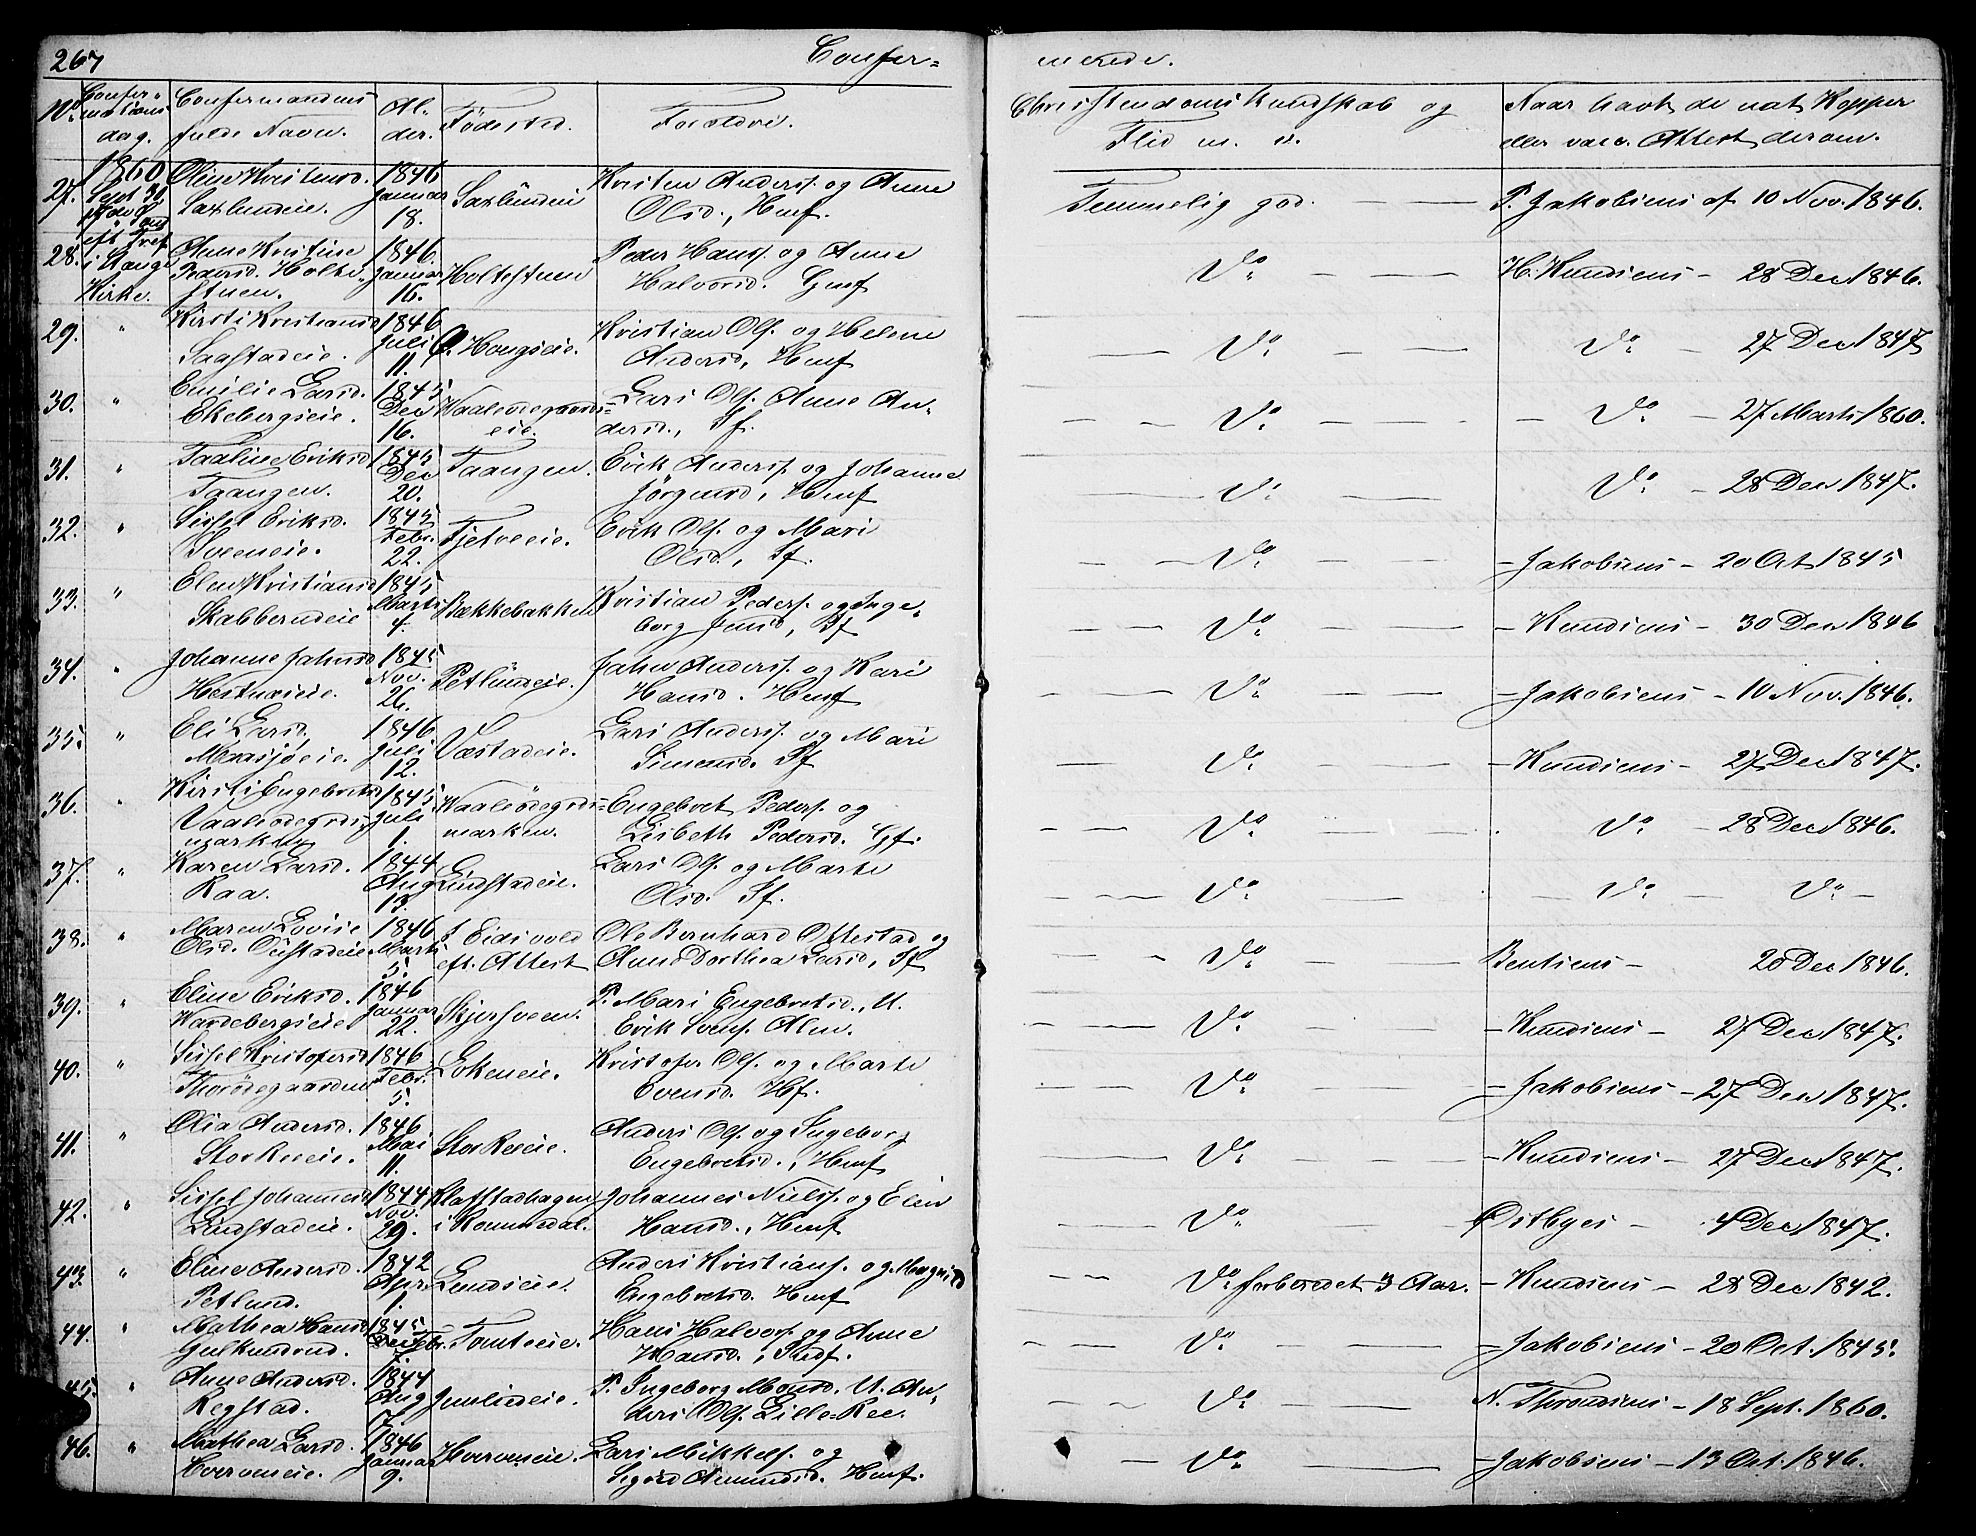 267 Confer- merede.
No. Confermations dag. Confermandens fulde Navn. Alder. Fødested. Forældre. Christendoms Kundskab og Flid m. v. Naar havt de nat. Kopper eller vacc. Attest derom.
27. 1860 Sept 30 i Stange Kirke. Oline Kristensd. Saxlundeie. 1846 Januar 18. Saxlundeie Kristen Anders. og Anne Olsd., Hmf. Temmelig god. P. Jakobsens af 10 Nov. 1846.
28. Anne Kristine Pedersd. Holtestuen. 1846. Januar 16. Holtestuen Peder Hans. og Anne Halvorsd. Gmf Do H. Knudsens - 28 Dec 1846.
29. " Kirsti Kristiansd Sagstadeie. 1846 Juli 11. Hougseie. Kristian Ols. og Helene Andersd, Hmf Do Do - 27 Dec 1847
30. " Emilie Larsd. Ekebergseie. 1845 Dec 16. Vaaleødegaards- eie. Lars Ols. Anne Andersd., Sf. Do Do - 27 Marts 1860.
31. " Taaline Eriksd Taangen. 1845 Dec 20. Taangen. Erik Anders. og Johanne Jörgensd, Hmf Do Do - 28 Dec 1847.
32. " Sissel Eriksd. Sveneie. 1845 Febr. 22. Tjetveeie. Erik Ols. og Mari Olsd., Sf. Do - Jakobsens - 20 Oct 1845
33. " Elen Kristiansd Skabberudeie 1845 Marts 4. Bækkebakken Kristian Peders. og Ingeborg Jensd, Sf Do - Knudsens - 30 Dec 1846
34. " Johanne Jahnsd Hestnæseie. 1845 Nov. 26. Petlundeie. Jahn Anders. og Kari Hansd. Hmf Do - Jakobsens - 10 Nov. 1846.
35. " Eli Larsd. Mæhsjøeie. 1846 Juli 12. Væstadeie. Lars Anders. og Mari Simensd. Sf Do - Knudsens - 27 Dec 1847.
36. " Kirsti Engebretsd Vaaleødegrds- marken 1845 Juli 1. Vaaleødegrds- marken. Engebret Peders. og Lisbeth Pedersd. Gf. Do Do - 28 Dec 1846.
37. " Karen Larsd. Raa. 1844 Aug 13. Lindstadeie. Lars Ols. og Marte Olsd. Sf. Do Do - Do -
38. " Maren Lovise Olsd. Oustadeie 1846 Marts 5. f. Eidsvold eft. Attest Ole Bernhard Ottestad og Anne Dorthea Larsd, Sf Do Bentsens - 20 Dec 1846.
39. " Eline Eriksd. Vardebergseie 1846 Januar 22. Skjerfveen. P. Mari Engebretsd., U. Erik Svens. Alm. Do - Knudsens - 27 Dec 1847.
40. " Sissel Kristofersd Thorødegaarden 1846 Febr. 5. Lokeneie. Kristofer Ols. og Marte Evensd. Hf. Do - Jakobsens - 27 Dec 1847.
41. " Olia Andersd. Stor Reeie. 1846 Mai 11. Stor Reeie. Anders Ols. og Ingeborg Engebretsd., Hmf Do - Knudsens - 27 Dec 1847.
42. " Sissel Johannesd Lindstadeie. 1844 Nov. 29. Klafstadhagen i Romsdal. Johannes Niels. og Elen Hansd., Hmf Do Østbyes - 4 Dec 1847.
43. " Eline Andersd. Petlund. 1842 Apr. 1. Lundseie. Anders Kristians. og Magnild Engebretsd. Hmf Do forberedet 3 Aar. - Knudsens - 28 Dec 1842.
44. " Mathea Hansd Gulknuderud. 1845 Febr. 7. Tomteeie. Hans Halvors. og Anne Hansd., Do - Jakobsens - 20 Oct. 1845.
45. " Anne Andersd. Regstad. 1844 Aug Jemlundeie. P. Ingeborg Monsd. U. Anders Ols. Lille-Ree. Do N. Throndsens - 18 Sept. 1860.
46. " Mathea Larsd. Hverveneie. 1846 Januar 9. Hverveneie. Lars Mikkels. og Sigrid Amundsd. Hmf. Do - Jakobsens - 13 Oct. 1846.